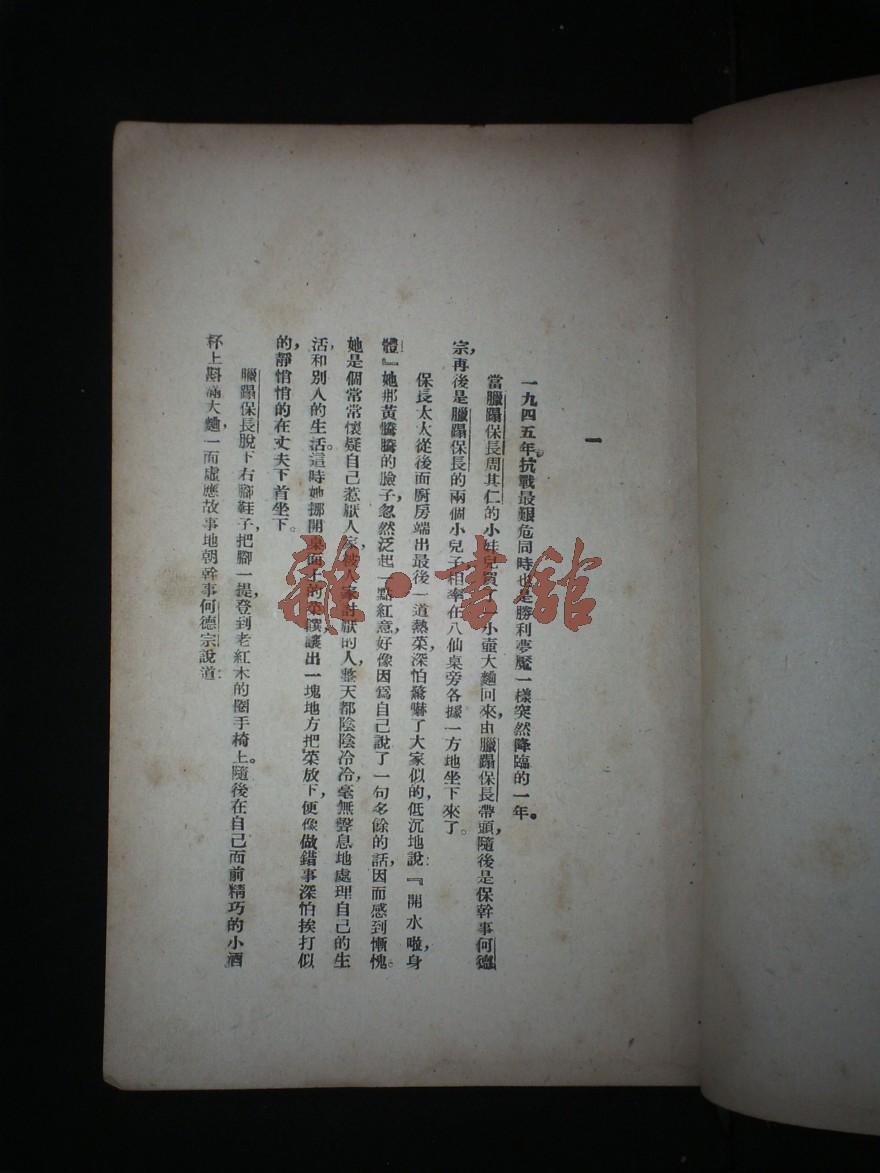 一
一九四五年，抗戰最艱危同時也是勝利夢魘一樣突然降臨的一年。
當臘蹋保長周其仁的小娃兒買了一小壺大麯回來，由臘蹋保長帶頭，隨後是保幹事何德
宗，再後是臘蹋保長的兩個小兒子相率在八仙桌旁各據一方地坐下來了。
保長太太從後面廚房端出最後一道熱菜，深怕驚嚇了大家似的，低沉地說：『開水啦，身
體』她那黃懨懨的臉子，忽然泛起一點紅意，好像因爲自己說了一句多餘的話，因而感到慚愧。
她是個常常懷疑自己惹厭人家，被人家討厭的人，整天都陰陰冷冷，毫無聲息地處理自己的生
活，和別人的生活。這時她挪開桌面上的菜饌，讓出一塊地方把菜放下，便像做錯事深怕挨打似
的，靜悄悄的在丈夫下首坐下。
臘蹋保長脫下右腳鞋子，把腳一提，登到老紅木的圈手椅上。隨後在自己面前精巧的小酒
杯上斟滿大麯，一面虛應故事地朝幹事何德宗說道：
雜·書館